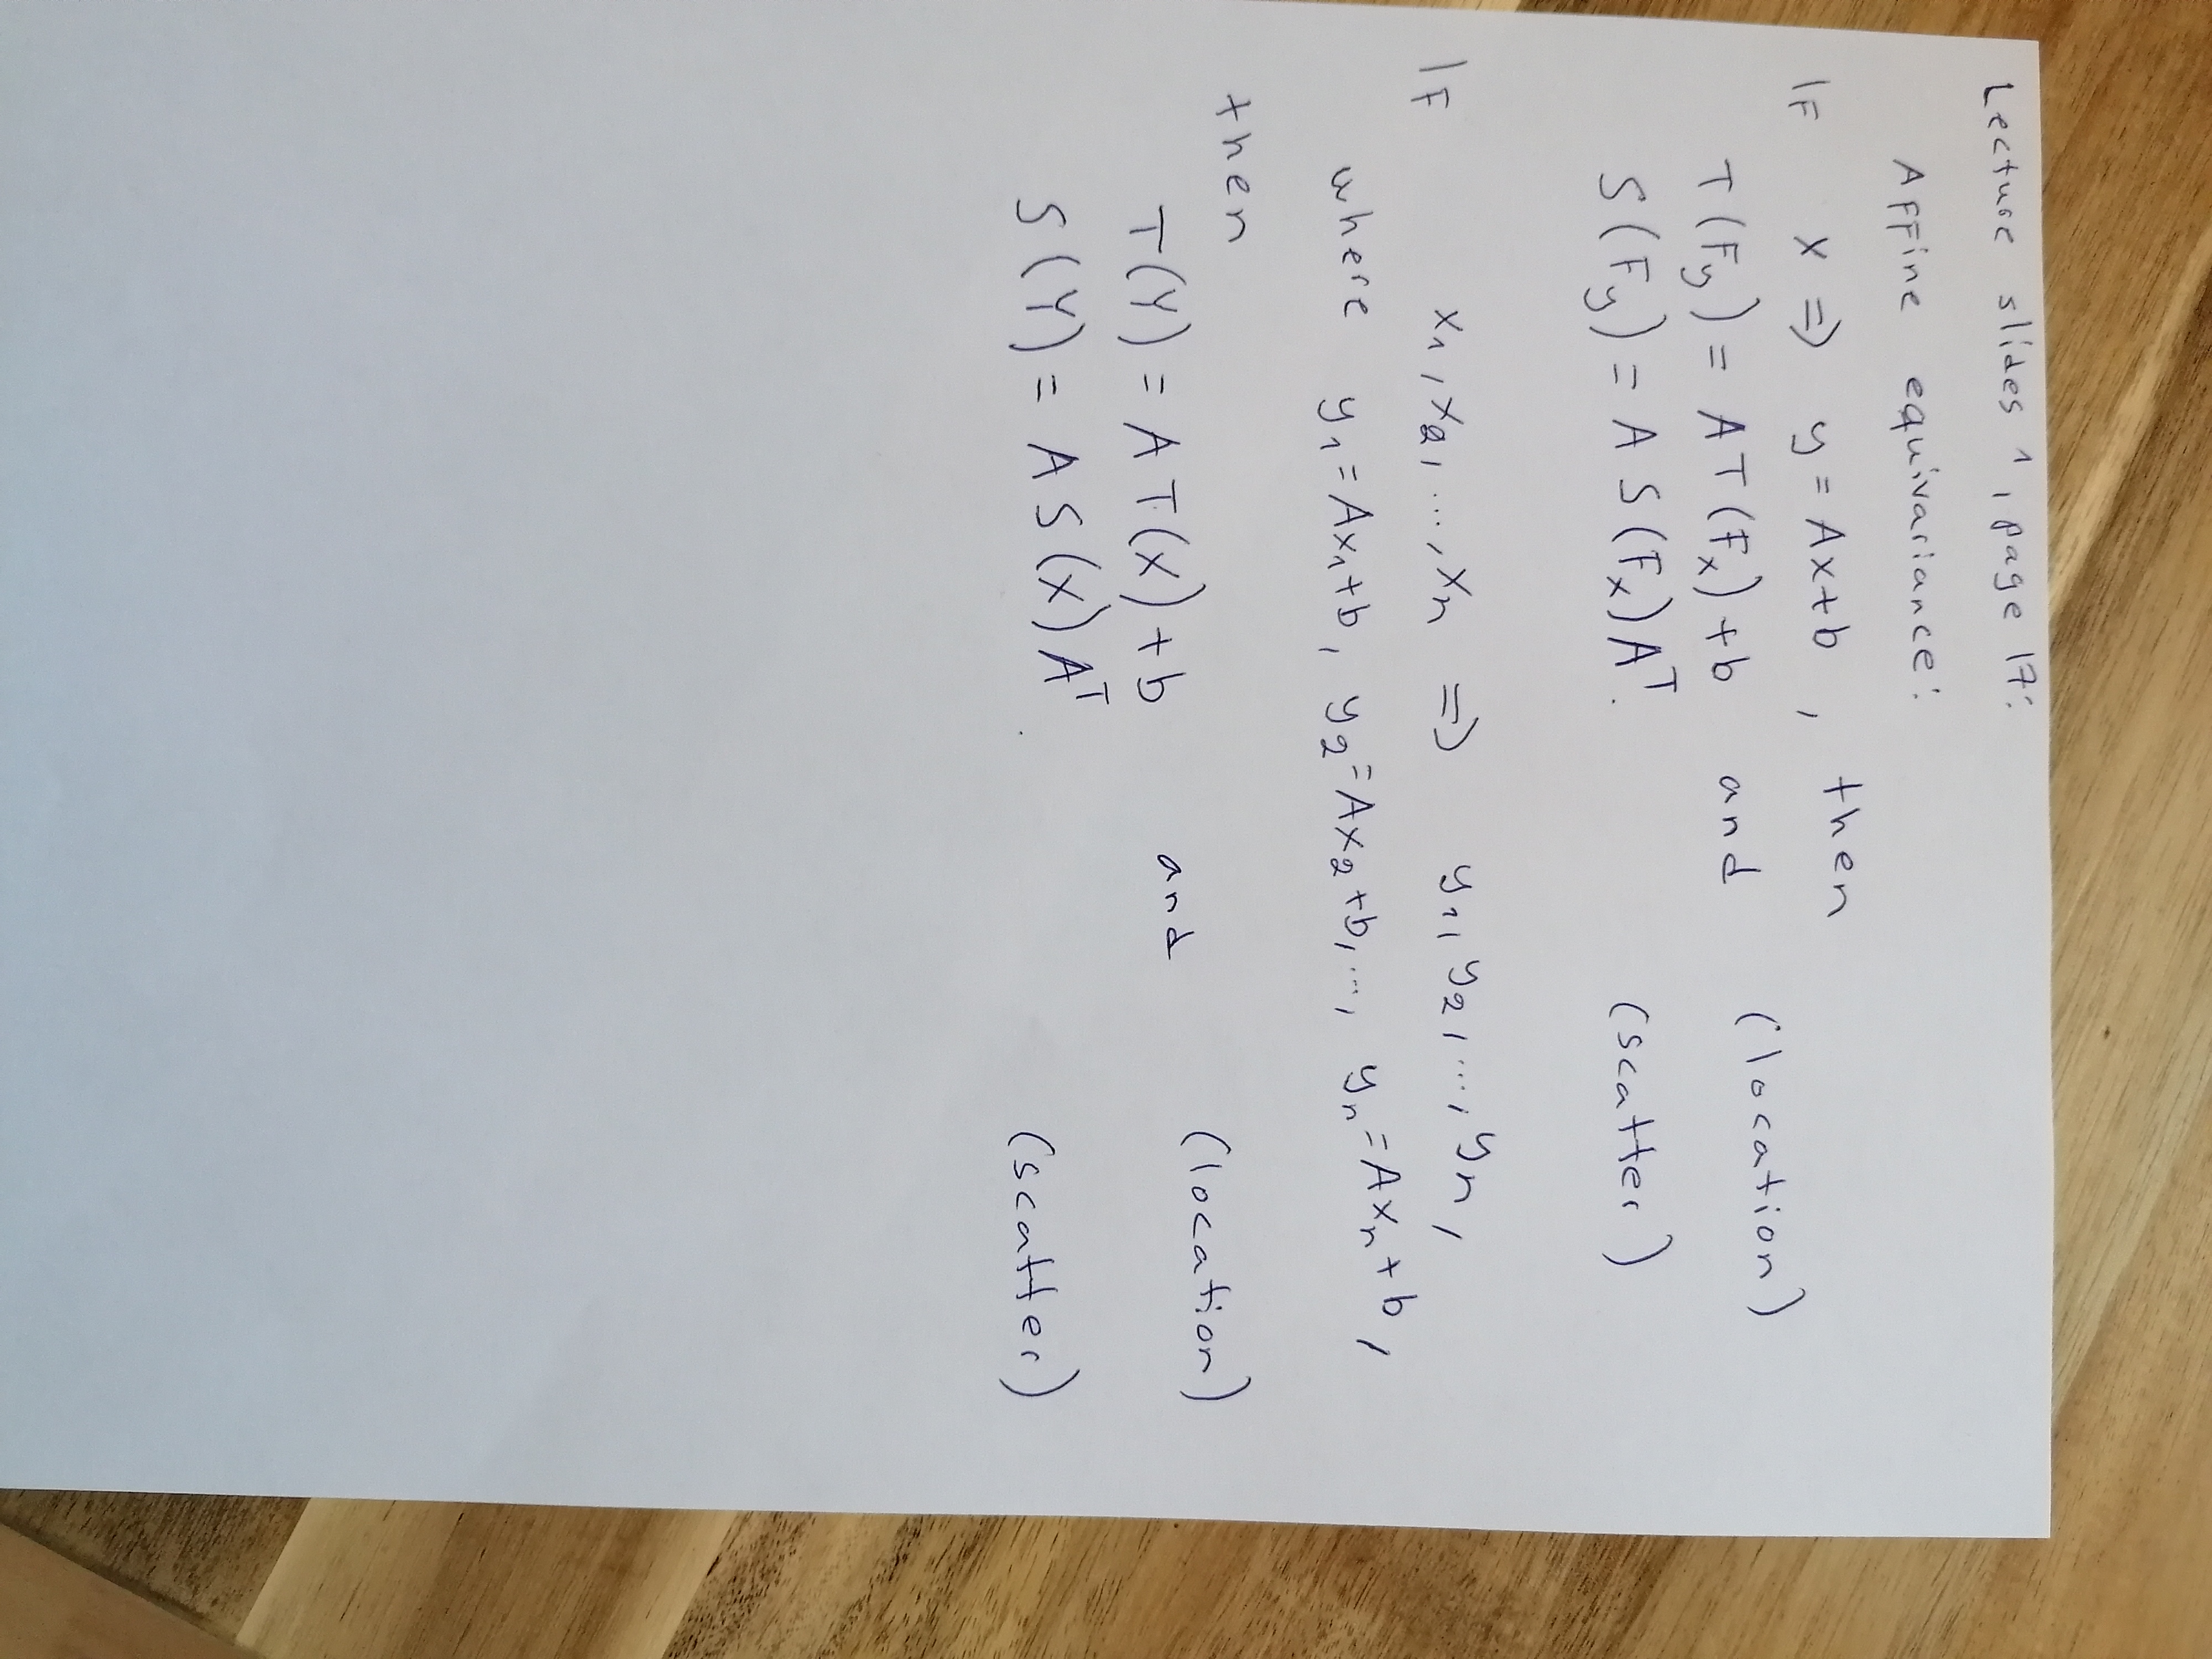 Lecture slides 1, page 17:
Affine equivariance:
If x ⇒ y = Ax+b, then
T(F_y) = A T(F_x) + b and (location)
S(F_y) = A S(F_x) A^T. (scatter)
If x_1, x_2, ..., x_n ⇒ y_1, y_2, ..., y_n,
where y_1 = Ax_1+b, y_2 = Ax_2+b, ..., y_n = Ax_n+b,
then
T(Y) = A T(X) + b and (location)
S(Y) = A S(X) A^T. (scatter)